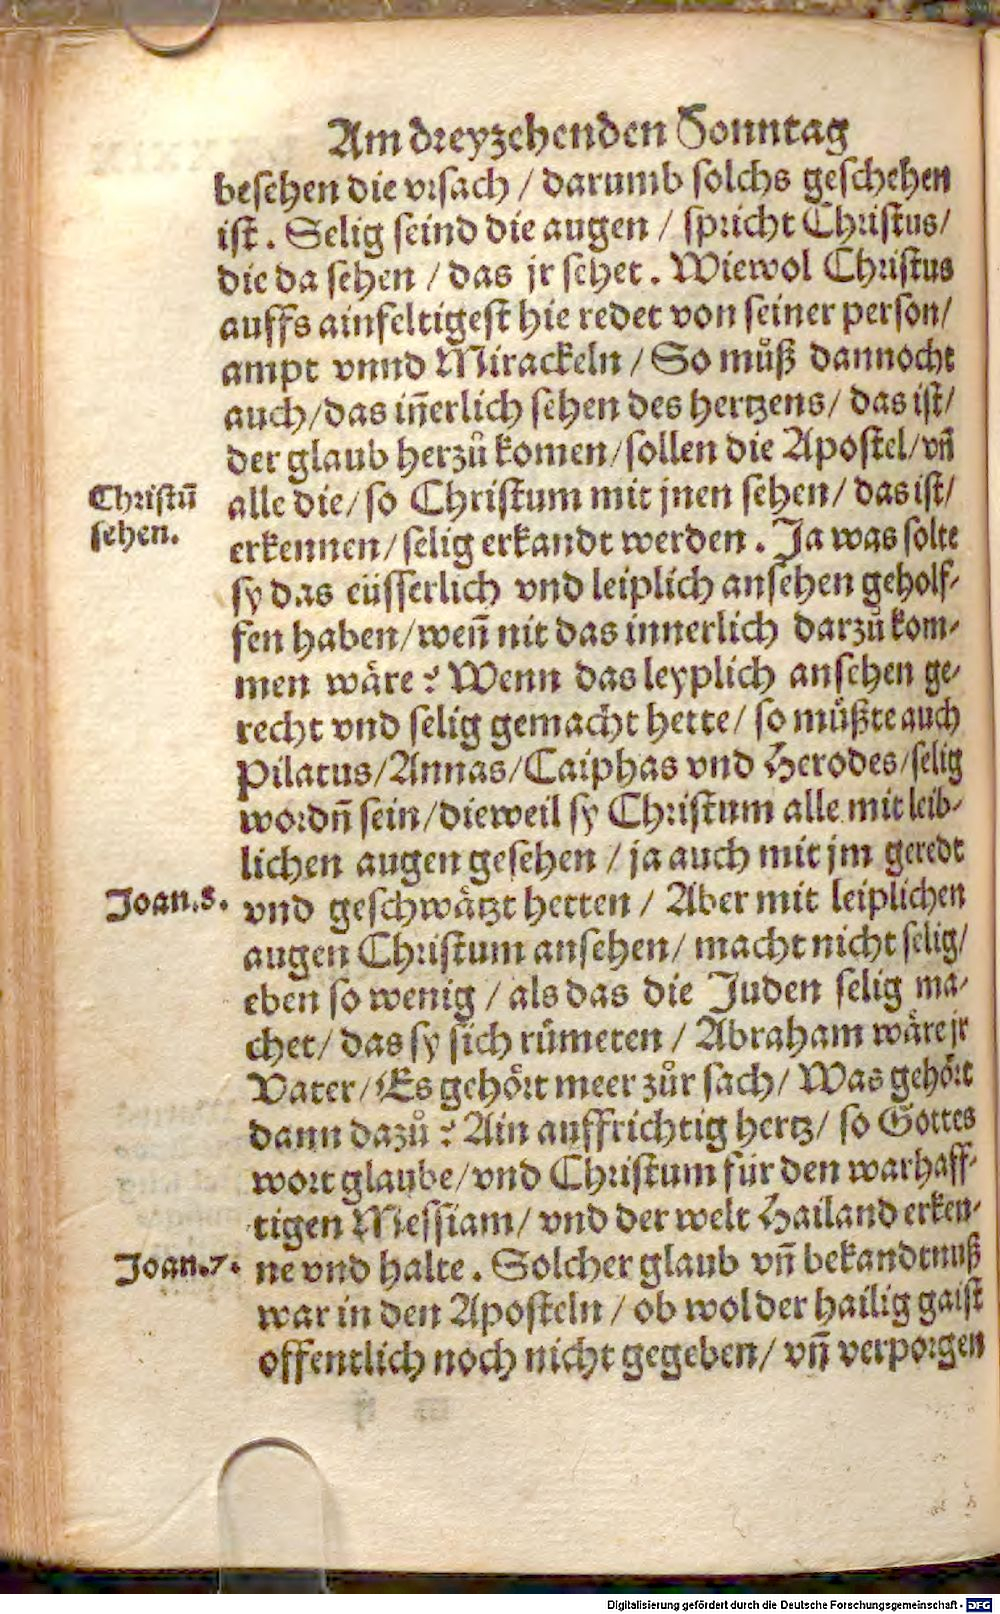 Am dreyzehenden Sonntag
besehen die vrsach / darumb solchs geschehen
ist. Selig seind die augen / spricht Christus/
die da sehen / das jr sehet. Wiewol Christus
auffs ainfeltigest hie redet von seiner person/
ampt vnnd Mirackeln / So můß dannocht
auch/das iñerlich sehen des hertzens/ das ist/
der glaub herzů komen/sollen die Apostel/vñ
Christũ
sehen.
alle die/ so Christum mit jnen sehen/ das ist/
erkennen/selig erkandt werden. Ja was solte
sy das eüsserlich vnd leiplich ansehen geholf-
fen haben/weñ nit das innerlich darzů kom-
men wäre? Wenn das leyplich ansehen ge-
recht vnd selig gemacht hette/ so müßte auch
Pilatus/Annas/Caiphas vnd Herodes/selig
wordñ sein/dieweil sy Christum alle mit leib-
lichen augen gesehen / ja auch mit jm geredt
Joan.8.
vnd geschwätzt hetten / Aber mit leiplichen
augen Christum ansehen/ macht nicht selig/
eben so wenig / als das die Juden selig ma-
chet/ das sy sich rümeten / Abraham wäre jr
Vater/Es gehört meer zůr sach/ Was gehört
dann dazů? Ain auffrichtig hertz/ so Gottes
wort glaube/vnd Christum für den warhaff-
tigen Messiam/ vnd der welt Hailand erken-
Joan.7.
ne vnd halte. Solcher glaub vñ bekandtnuß
war in den Aposteln / ob wol der hailig gaist
offentlich noch nicht gegeben/ vñ verporgen
Digitalisierung gefördert durch die Deutsche Forschungsgemeinschaft - DFG